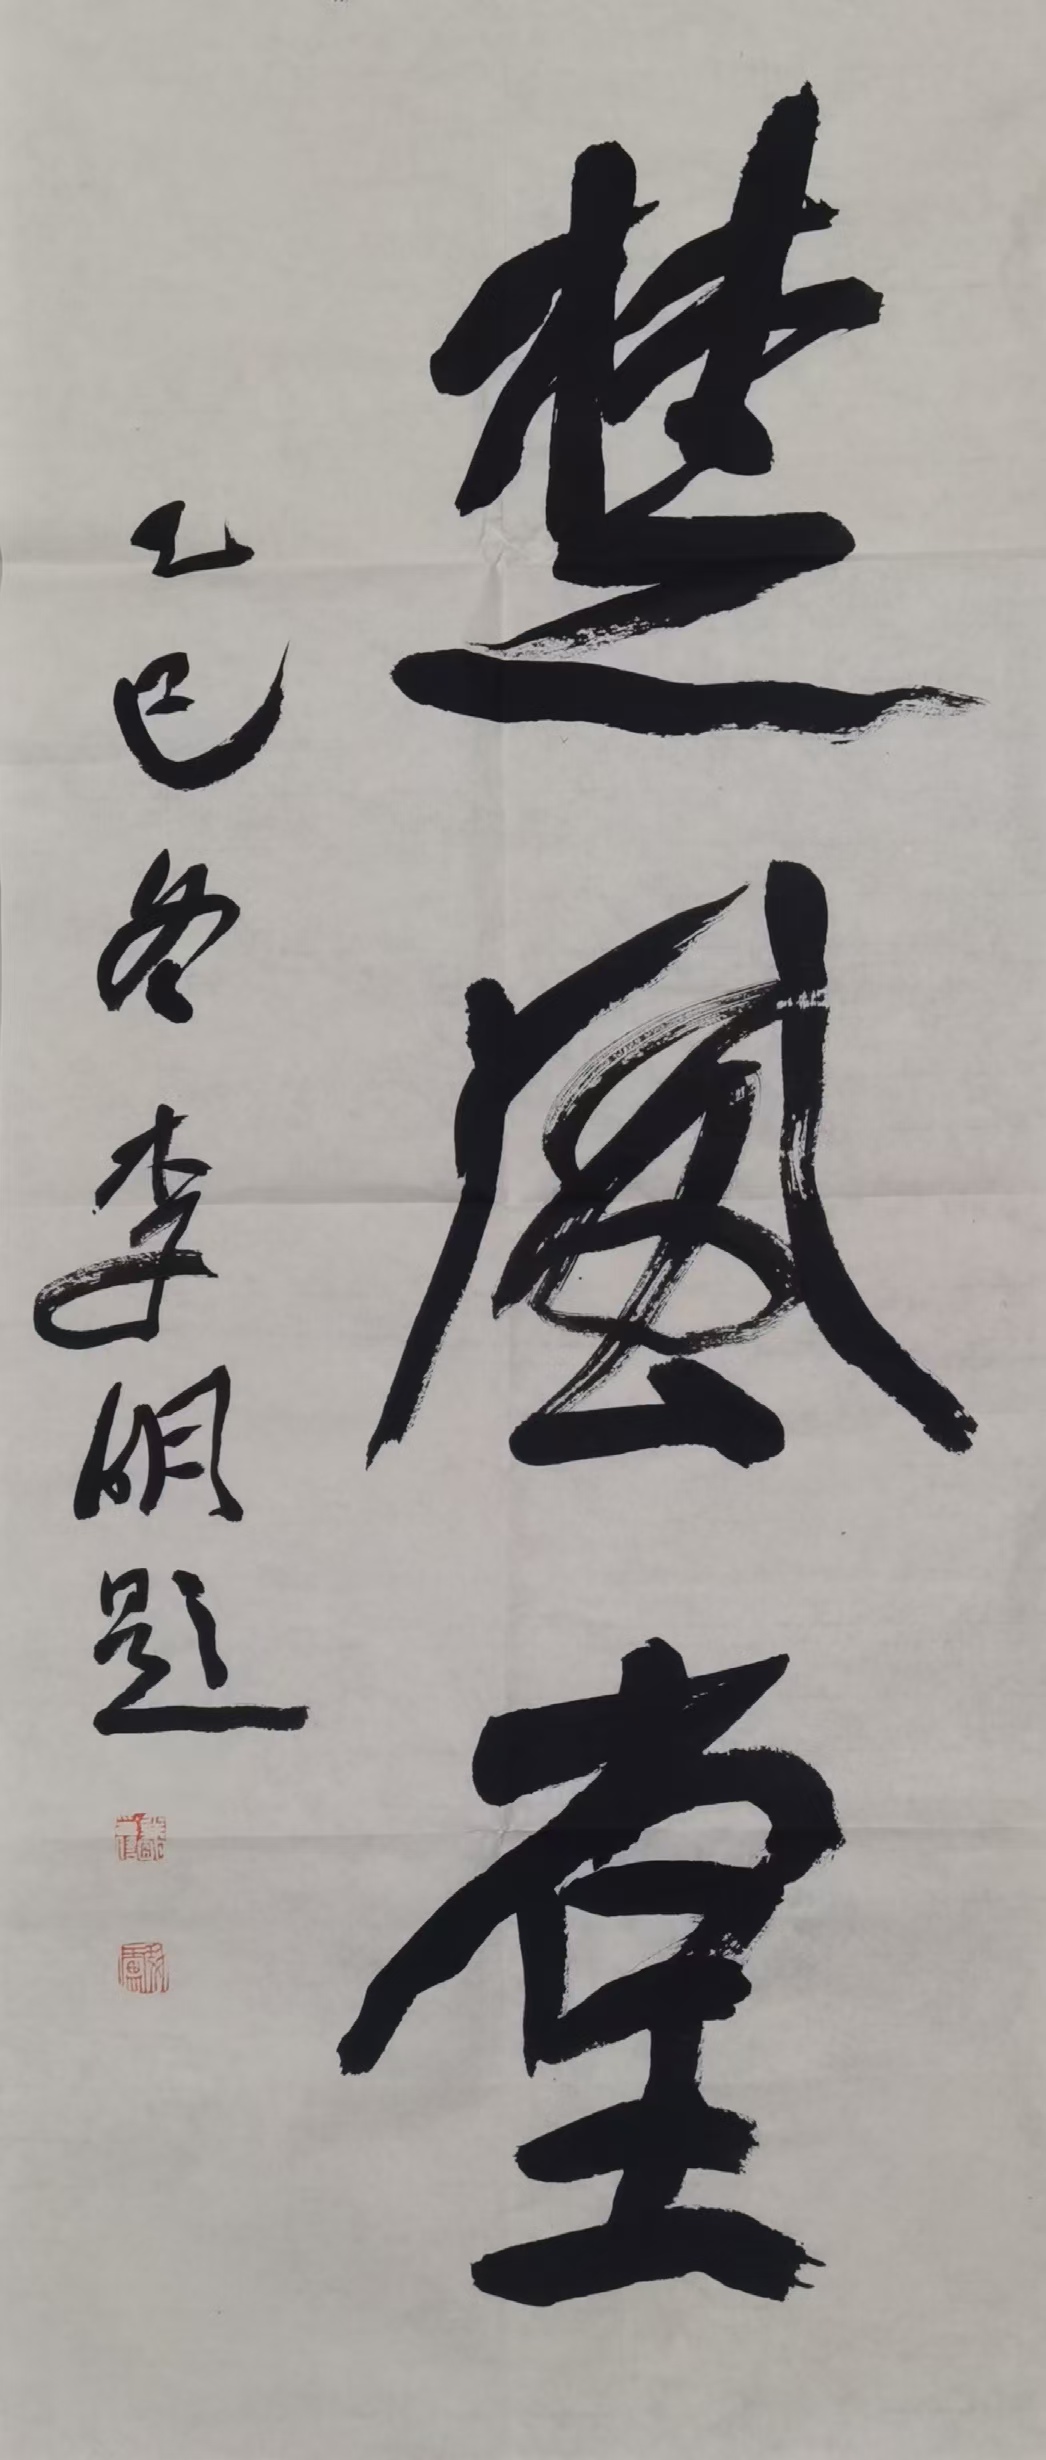 楚風堂
乙巳冬李明題